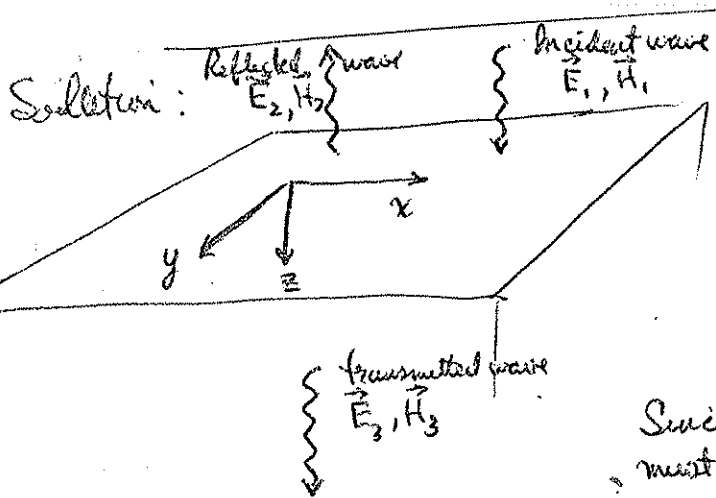 Solution :
Reflected wave
E⃗₂, H⃗₂
Incident wave
E⃗₁, H⃗₁
x
y
z
transmitted wave
E⃗₃, H⃗₃
must